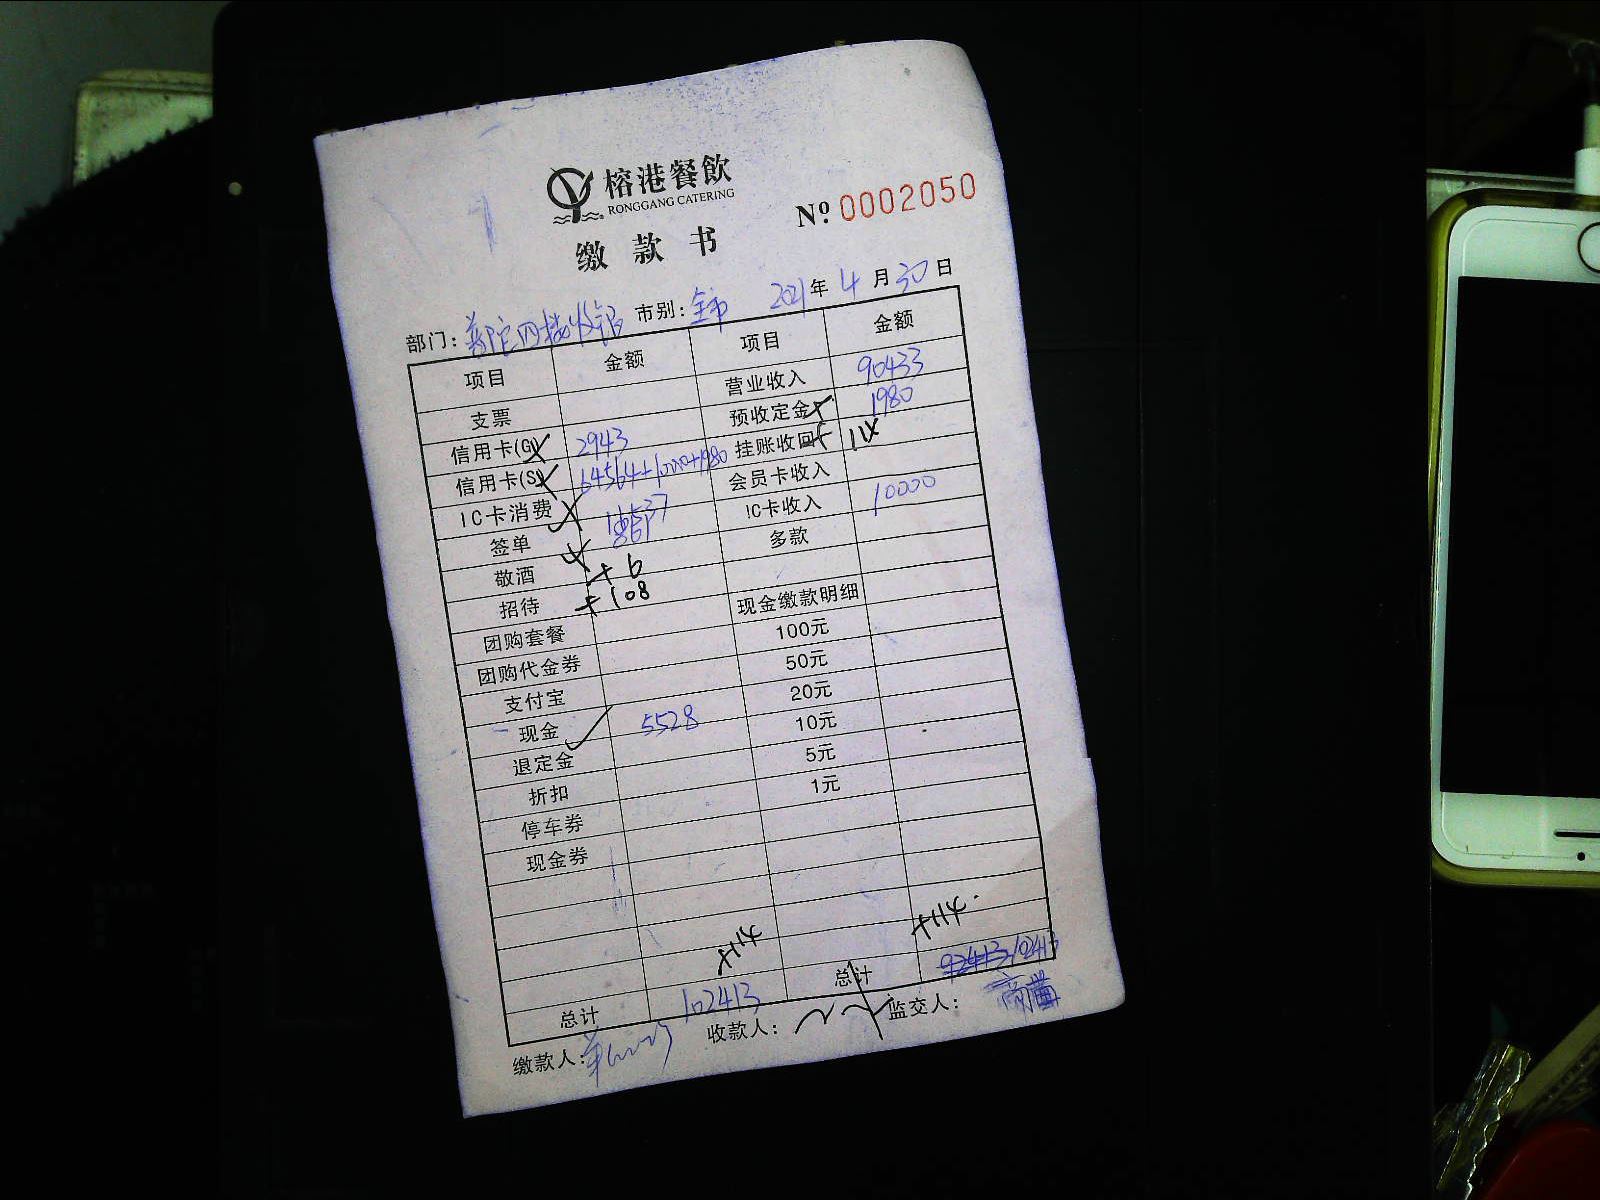 榕港餐飲
RONGGANG CATERING
Nº 0002050
缴款书
部门: 普陀四楼收银 市别: 全市 2021年 4月 30日
项目 金额 项目 金额
支票 营业收入 90433
信用卡(G) 2943 预收定金 1980
信用卡(S) 64564+10000+1980 挂账收回 114
IC卡消费 会员卡收入
签单 861 IC卡收入 10000
敬酒 +6 多款
招待 +108
团购套餐 现金缴款明细
团购代金券 100元
支付宝 50元
现金 5528 20元
退定金 10元
折扣 5元
停车券 1元
现金券
+114 +114
总计 102413 总计 92413 102413
缴款人: 收款人: 监交人: